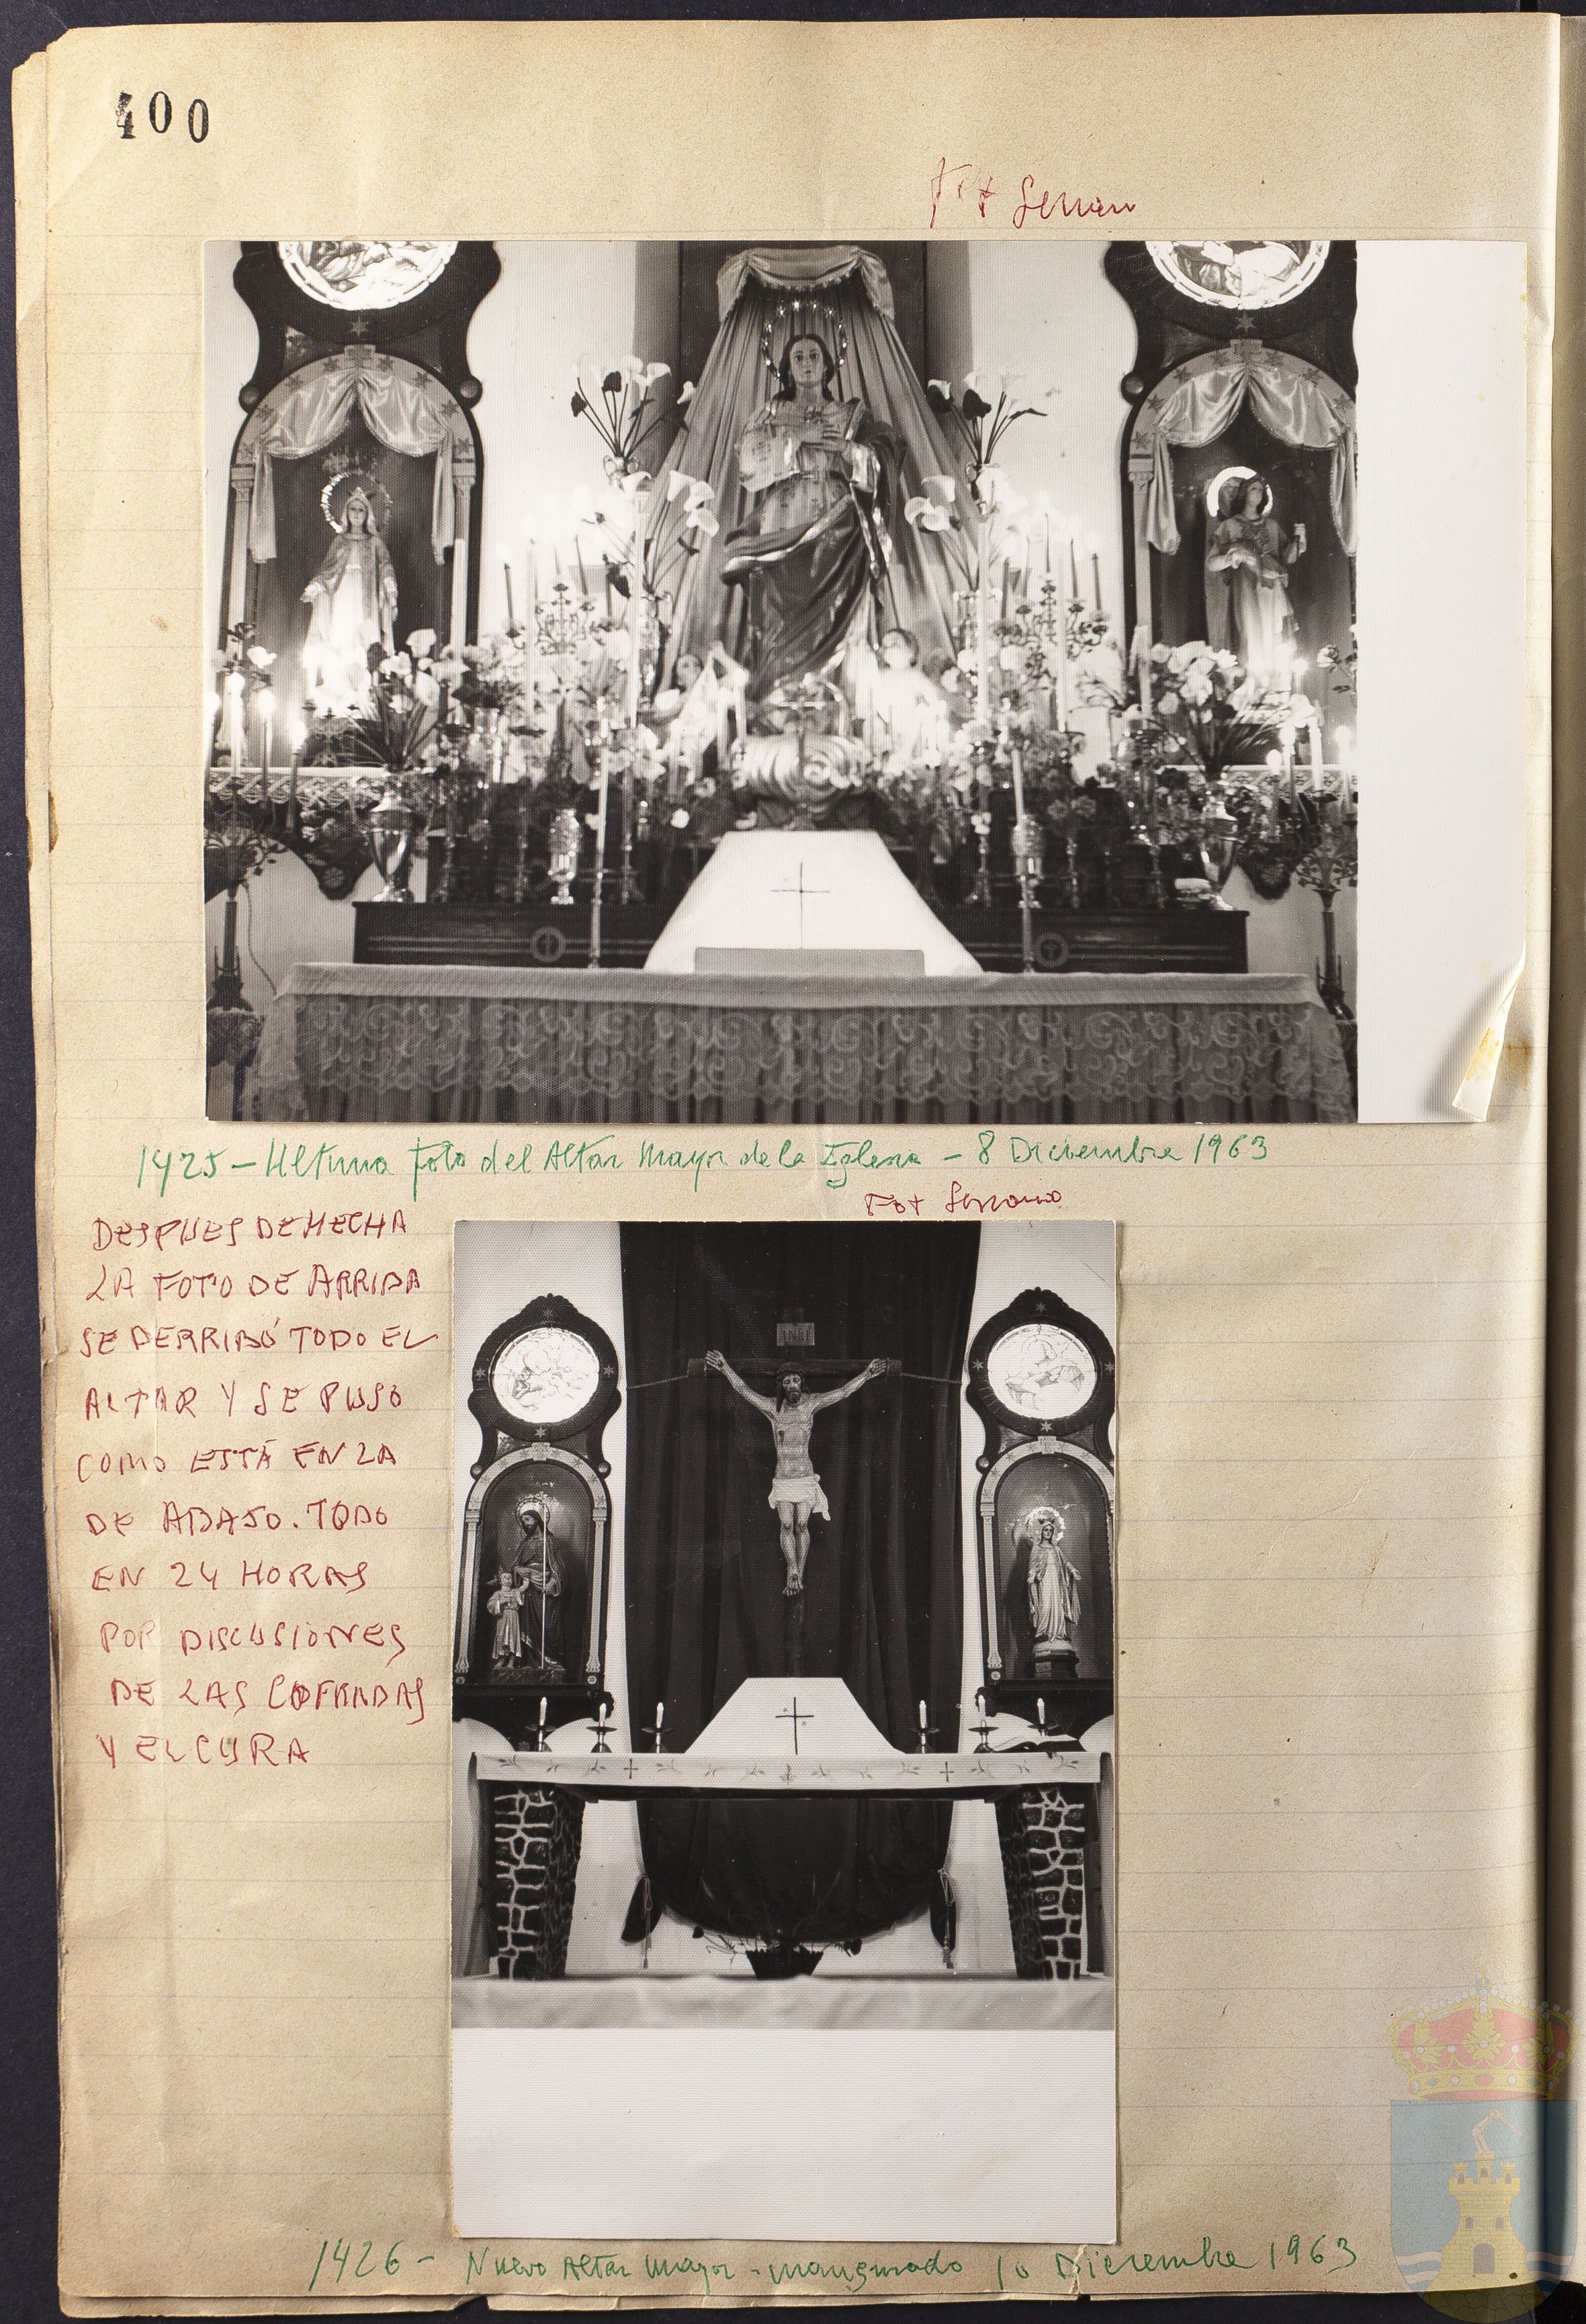 400
Fot Serrano
1425 - Ultima foto del Altar Mayor de la Iglesia - 8 Diciembre 1963
Fot Serrano
DESPUES DE HECHA
LA FOTO DE ARRIBA
SE DERRIBÓ TODO EL
ALTAR Y SE PUSO
COMO ESTÁ EN LA
DE ABAJO. TODO
EN 24 HORAS
POR DISCUSIONES
DE LAS COFRADAS
Y EL CURA
INRI
1426 - Nuevo Altar mayor - inaugurado 10 Diciembre 1963